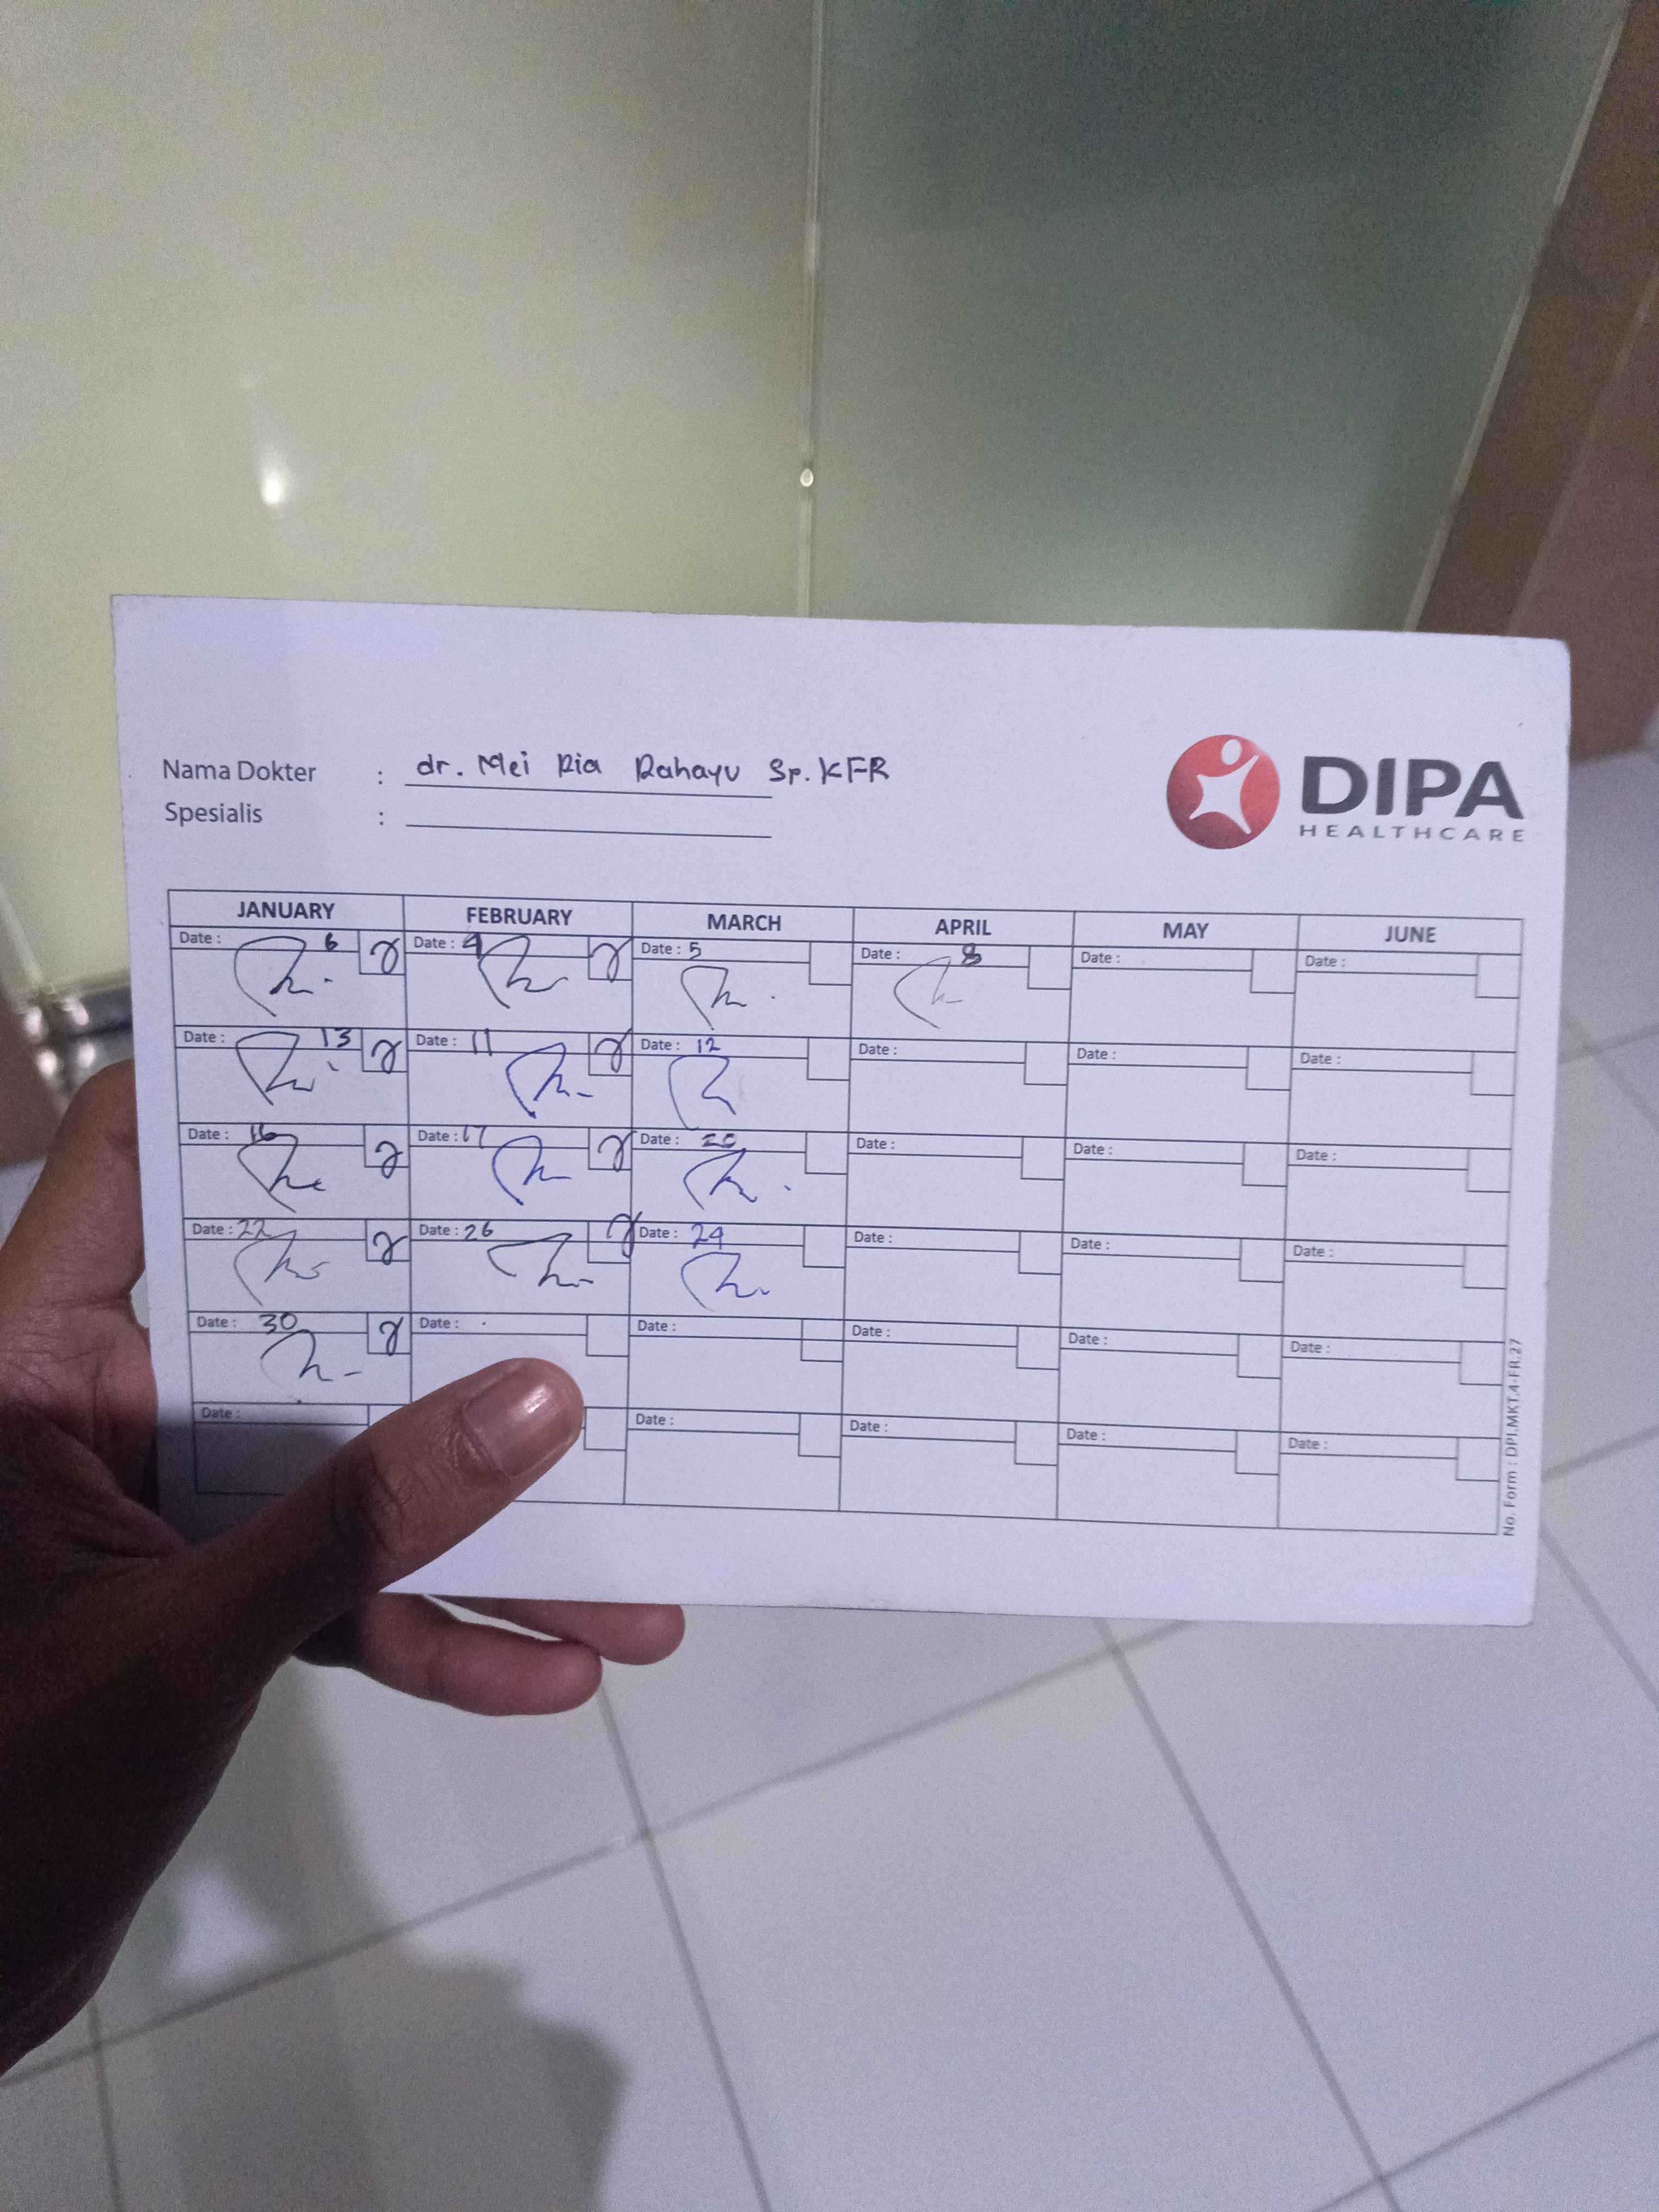 Nama Dokter : dr. Mei Ria Rahayu Sp.KFR
Spesialis :
DIPA
HEALTHCARE
JANUARY FEBRUARY MARCH APRIL MAY JUNE
Date : 6 Date : 4 Date : 5 Date : 8 Date : Date :
Date : 13 Date : 11 Date : 12 Date : Date : Date :
Date : 16 Date : 17 Date : 20 Date : Date : Date :
Date : 22 Date : 26 Date : 24 Date : Date : Date :
Date : 30 Date : Date : Date : Date : Date :
Date : Date : Date : Date : Date :
No. Form : DPI.MKT.4-FR.27